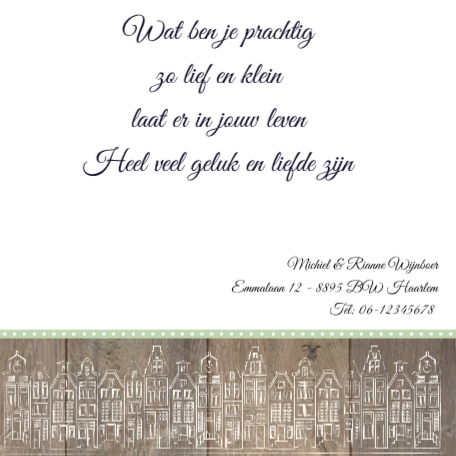 Wat ben je prachtig
zo lief en klein
laat er in jouw leven
Heel veel geluk en liefde zijn
Michiel & Rianne Wijnboer
Emmalaan 12 - 8895 BW Haarlem
Tel: 06-12345678